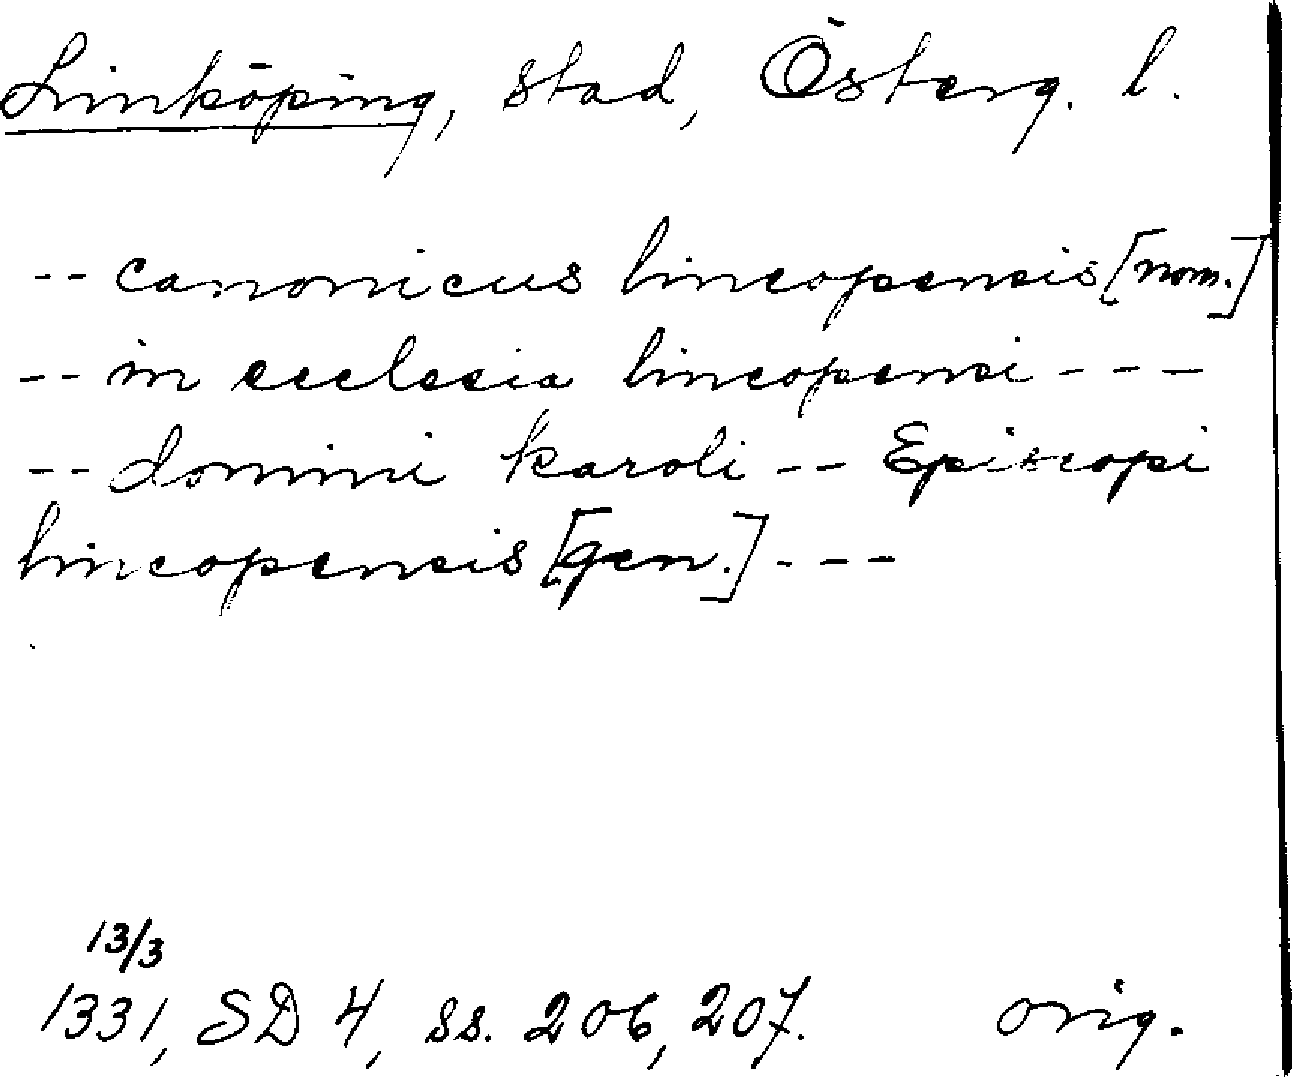 Linköping, stad, Österg. l.
-- canonicus lincopensis [nom.]
-- in ecclesia lincopensi ---
-- domini karoli -- Episcopi
lincopensis [gen.] ---
13/3
1331, SD 4, ss. 206, 207. orig.